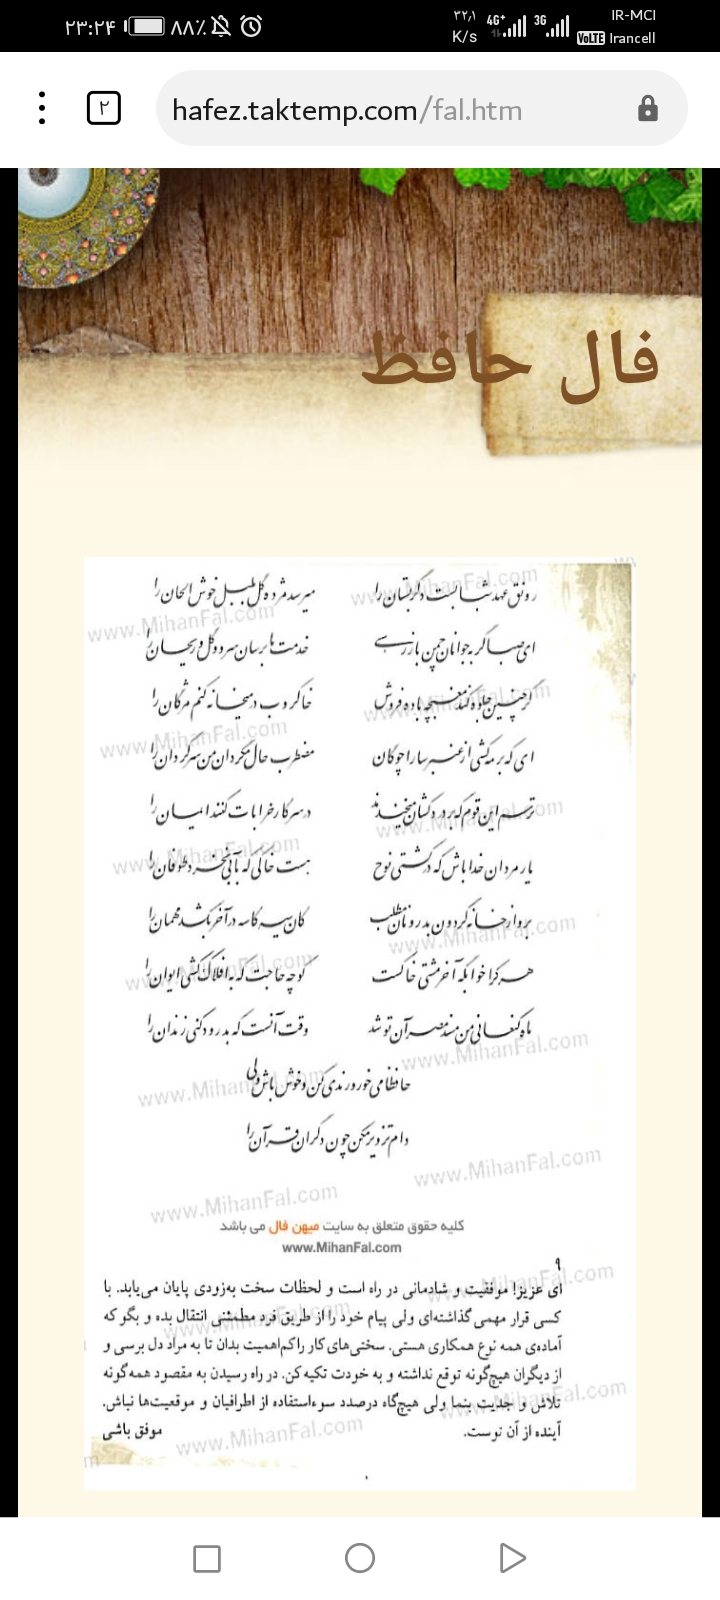 ۲۳:۲۴ ۸۸٪ ۳۲٫۱ K/s 4G+ 3G VoLTE IR-MCI Irancell
۲ hafez.taktemp.com/fal.htm
فال حافظ
رونق عهد شبابست دگر بستان را میرسد مژده گل بلبل خوش الحان را
ای صبا گر به جوانان چمن باز رسی خدمت ما برسان سرو و گل و ریحان را
گر چنین جلوه کند مغبچه باده فروش خاکروب در میخانه کنم مژگان را
ای که بر مه کشی از عنبر سارا چوگان مضطرب حال مگردان من سرگردان را
ترسم این قوم که بر درد کشان میخندند در سر کار خرابات کنند ایمان را
یار مردان خدا باش که در کشتی نوح هست خاکی که به آبی نخرد طوفان را
برو از خانه گردون بدر و نان مطلب کان سیه کاسه در آخر بکشد مهمان را
هر کرا خوابگه آخر مشتی خاکست گو چه حاجت که به افلاک کشی ایوان را
ماه کنعانی من مسند مصر آن تو شد وقت آنست که بدرود کنی زندان را
حافظا می خور و رندی کن و خوش باش ولی
دام تزویر مکن چون دگران قرآن را
کلیه حقوق متعلق به سایت میهن فال می باشد
www.MihanFal.com
۹
ای عزیز! موفقیت و شادمانی در راه است و لحظات سخت به‌زودی پایان می‌یابد. با
کسی قرار مهمی گذاشته‌ای ولی پیام خود را از طریق فرد مطمئنی انتقال بده و بگو که
آماده‌ی همه نوع همکاری هستی. سختی‌های کار را کم‌اهمیت بدان تا به مراد دل برسی و
از دیگران هیچ‌گونه توقع نداشته و به خودت تکیه کن. در راه رسیدن به مقصود همه‌گونه
تلاش و جدیت بنما ولی هیچ‌گاه درصدد سوءاستفاده از اطرافیان و موقعیت‌ها نباش.
آینده از آن توست. موفق باشی